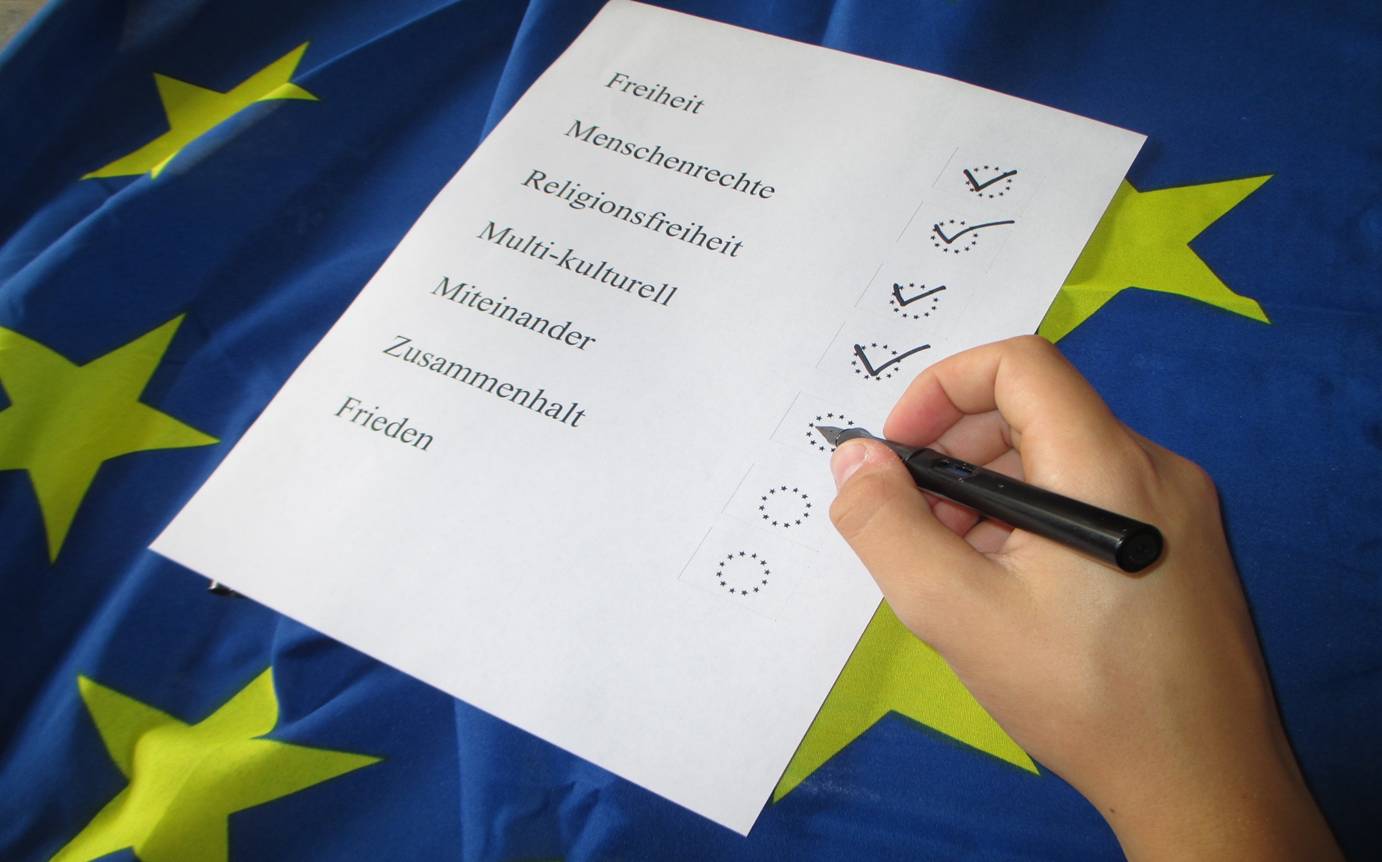 Freiheit
Menschenrechte
Religionsfreiheit
Multi-kulturell
Miteinander
Zusammenhalt
Frieden